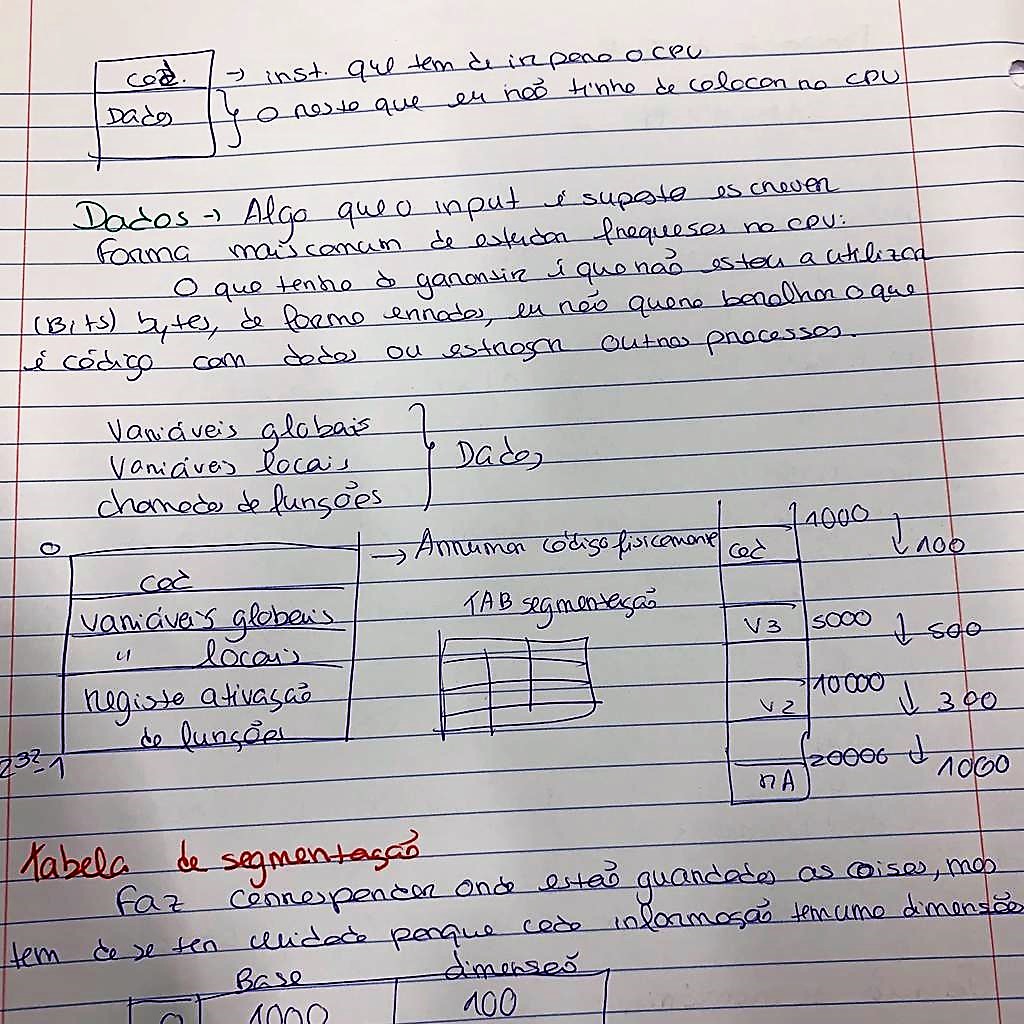 cod. → inst. que tem de ir para o CPU
Dados } O resto que eu não tinha de colocar no CPU
Dados → Algo que o input é suposto escrever
Forma mais comum de estudar
no CPU:
O que tenho de garantir é que não estou a utilizar
(Bits) bytes, de forma errada, eu não quero baralhar o que
é código com dados ou estragar outros processos.
Variáveis globais
Variáveis locais
chamadas de funções
} Dados
0
cod
variáveis globais
" locais
registo ativação
de funções
2³²-1
→ Arrumar código fisicamente
TAB segmentação
cod 1000 ↓ 100
V3 5000 ↓ 500
V2 10000 ↓ 300
rA 20000 ↓ 1000
Tabela de segmentação
Faz corresponder onde estão guardadas as coisas, mas
tem de se ter cuidado porque cada informação tem uma dimensão
Base dimensão
0 1000 100